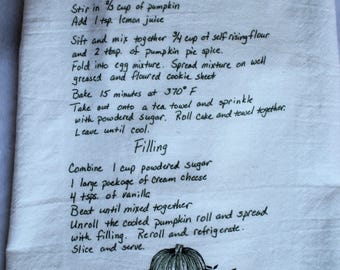 Stir in ⅔ cup of pumpkin
Add 1 tsp lemon juice
Sift and mix together ¾ cup of self rising flour
and 2 tbsp. of pumpkin pie spice.
Fold into egg mixture. Spread mixture on well
greased and floured cookie sheet
Bake 15 minutes at 370° F
Take out onto a tea towel and sprinkle
with powdered sugar. Roll cake and towel together.
Leave until cool.
Filling
Combine 1 cup powdered sugar
1 large package of cream cheese
4 tsps. of vanilla
Beat until mixed together
Unroll the cooled pumpkin roll and spread
with filling. Reroll and refrigerate.
Slice and serve.